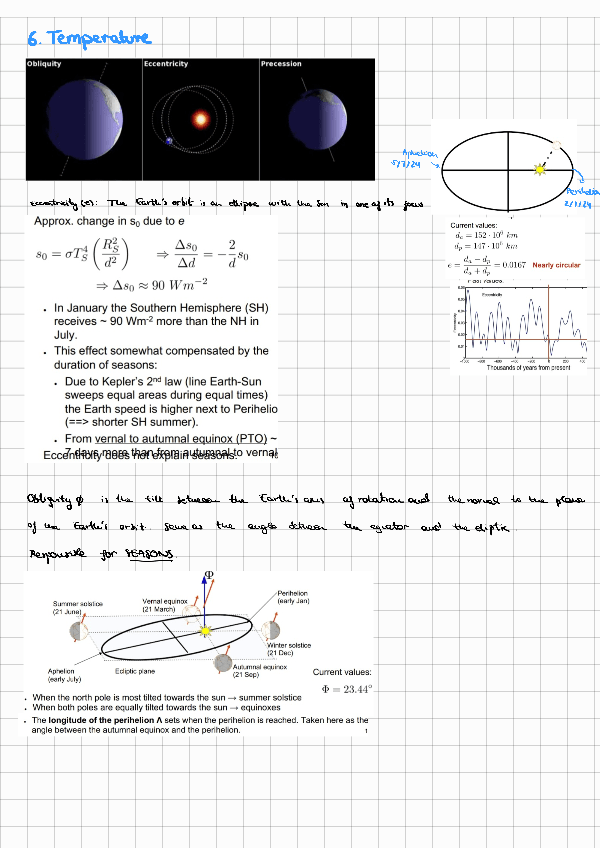 6. Temperature
Obliquity
Eccentricity
Precession
Aphelion
5/7/24
Perihelion
2/1/24
eccentricity (e): The Earth's orbit is an ellipse with the Sun in one of its focus
Approx. change in s₀ due to e
s₀ = σT_S⁴ (R_S²/d²) ⇒ Δs₀/Δd = −(2/d)s₀
⇒ Δs₀ ≈ 90 Wm⁻²
• In January the Southern Hemisphere (SH)
receives ~ 90 Wm⁻² more than the NH in
July.
• This effect somewhat compensated by the
duration of seasons:
• Due to Kepler's 2ⁿᵈ law (line Earth-Sun
sweeps equal areas during equal times)
the Earth speed is higher next to Perihelio
(==> shorter SH summer).
• From vernal to autumnal equinox (PTO) ~
7 days more than from autumnal to vernal
Eccentricity does not explain seasons.
Current values:
d_a = 152 · 10⁶ km
d_p = 147 · 10⁶ km
e = (d_a − d_p)/(d_a + d_p) = 0.0167 Nearly circular
Eccentricity
-1000 -800 -600 -400 -200 0 200 400
Thousands of years from present
Obliquity φ is the tilt between the Earth's axis of rotation and the normal to the plane
of the Earth's orbit. Same as the angle between the equator and the cliptic
Responsible for SEASONS.
Φ
Summer solstice
(21 June)
Vernal equinox
(21 March)
Perihelion
(early Jan)
Winter solstice
(21 Dec)
Autumnal equinox
(21 Sep)
Aphelion
(early July)
Ecliptic plane
Current values:
Φ = 23.44°
• When the north pole is most tilted towards the sun → summer solstice
• When both poles are equally tilted towards the sun → equinoxes
• The longitude of the perihelion Λ sets when the perihelion is reached. Taken here as the
angle between the autumnal equinox and the perihelion.
1